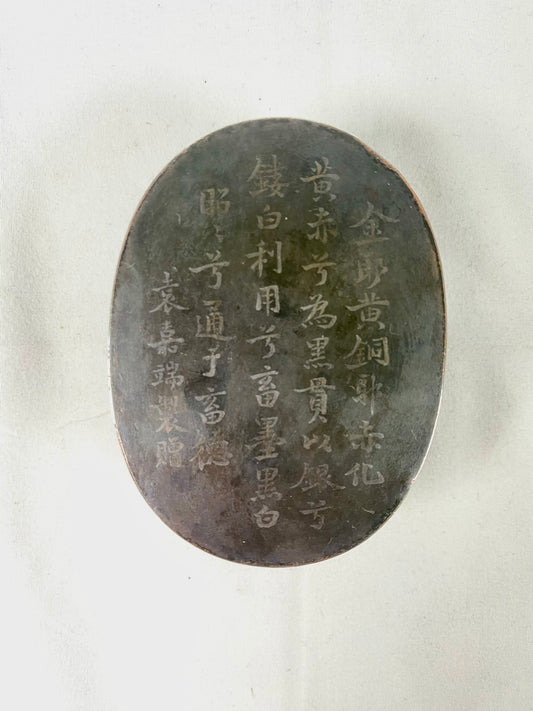 金耶黄銅耶赤化
黄赤兮為黑貫以銀兮
鏤白利用兮畜墨黑白
昭〻兮通于畜德
袁嘉端製贈